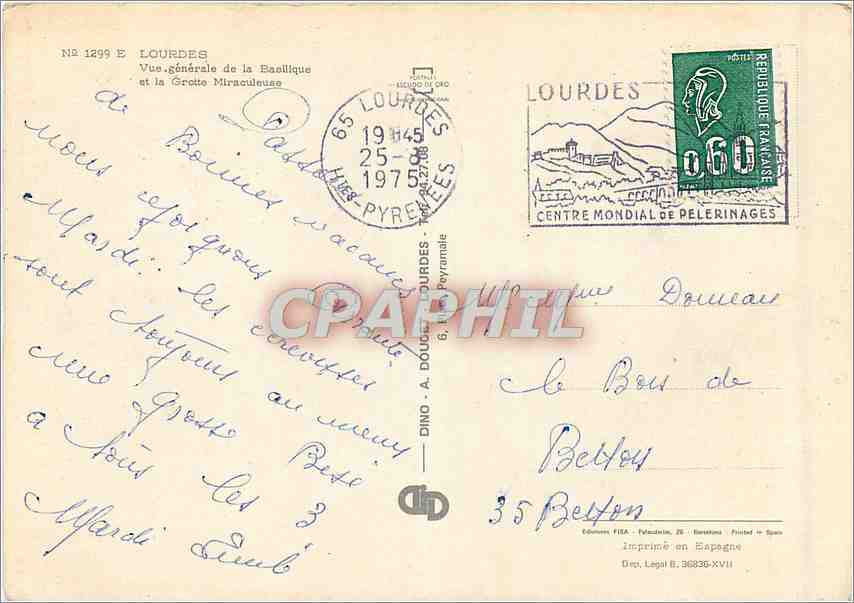 Nº 1299 E LOURDES
Vue générale de la Basilique
et la Grotte Miraculeuse
PORTFOLI
ESCUDO DE ORO
65 LOURDES
19H45
25-8
1975
HTES-PYRENEES
LOURDES
CENTRE MONDIAL DE PELERINAGES
POSTES
REPUBLIQUE FRANÇAISE
0,60
de Bonnes vacances
nous
Mardi.. les
sont toujours au menu
une grosse Bise
a tous les 3
Mardi
CPAPHIL
DINO - A. DOUCET - LOURDES - Tél. 94.27.08
6, Rue Peyramale
le Bois de
Betton
35 Betton
Ediciones FISA - Palaudarias, 26 - Barcelona - Printed in Spain
Imprimé en Espagne
Dep. Legal B. 36836-XVII